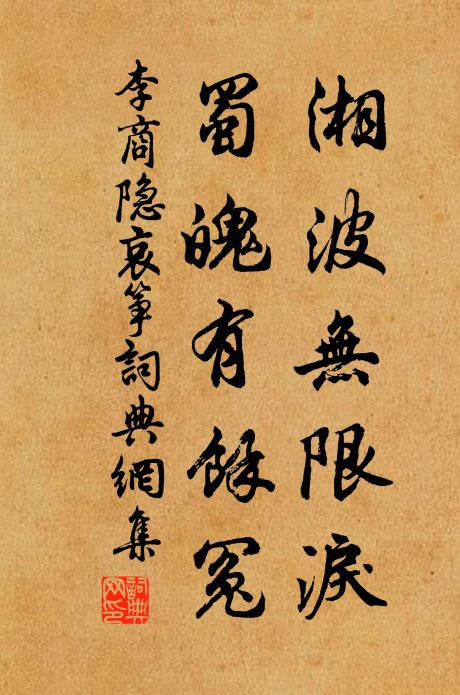 湘波無限淚
蜀魄有餘冤
李商隐哀筝詞典網集
詞典
网印